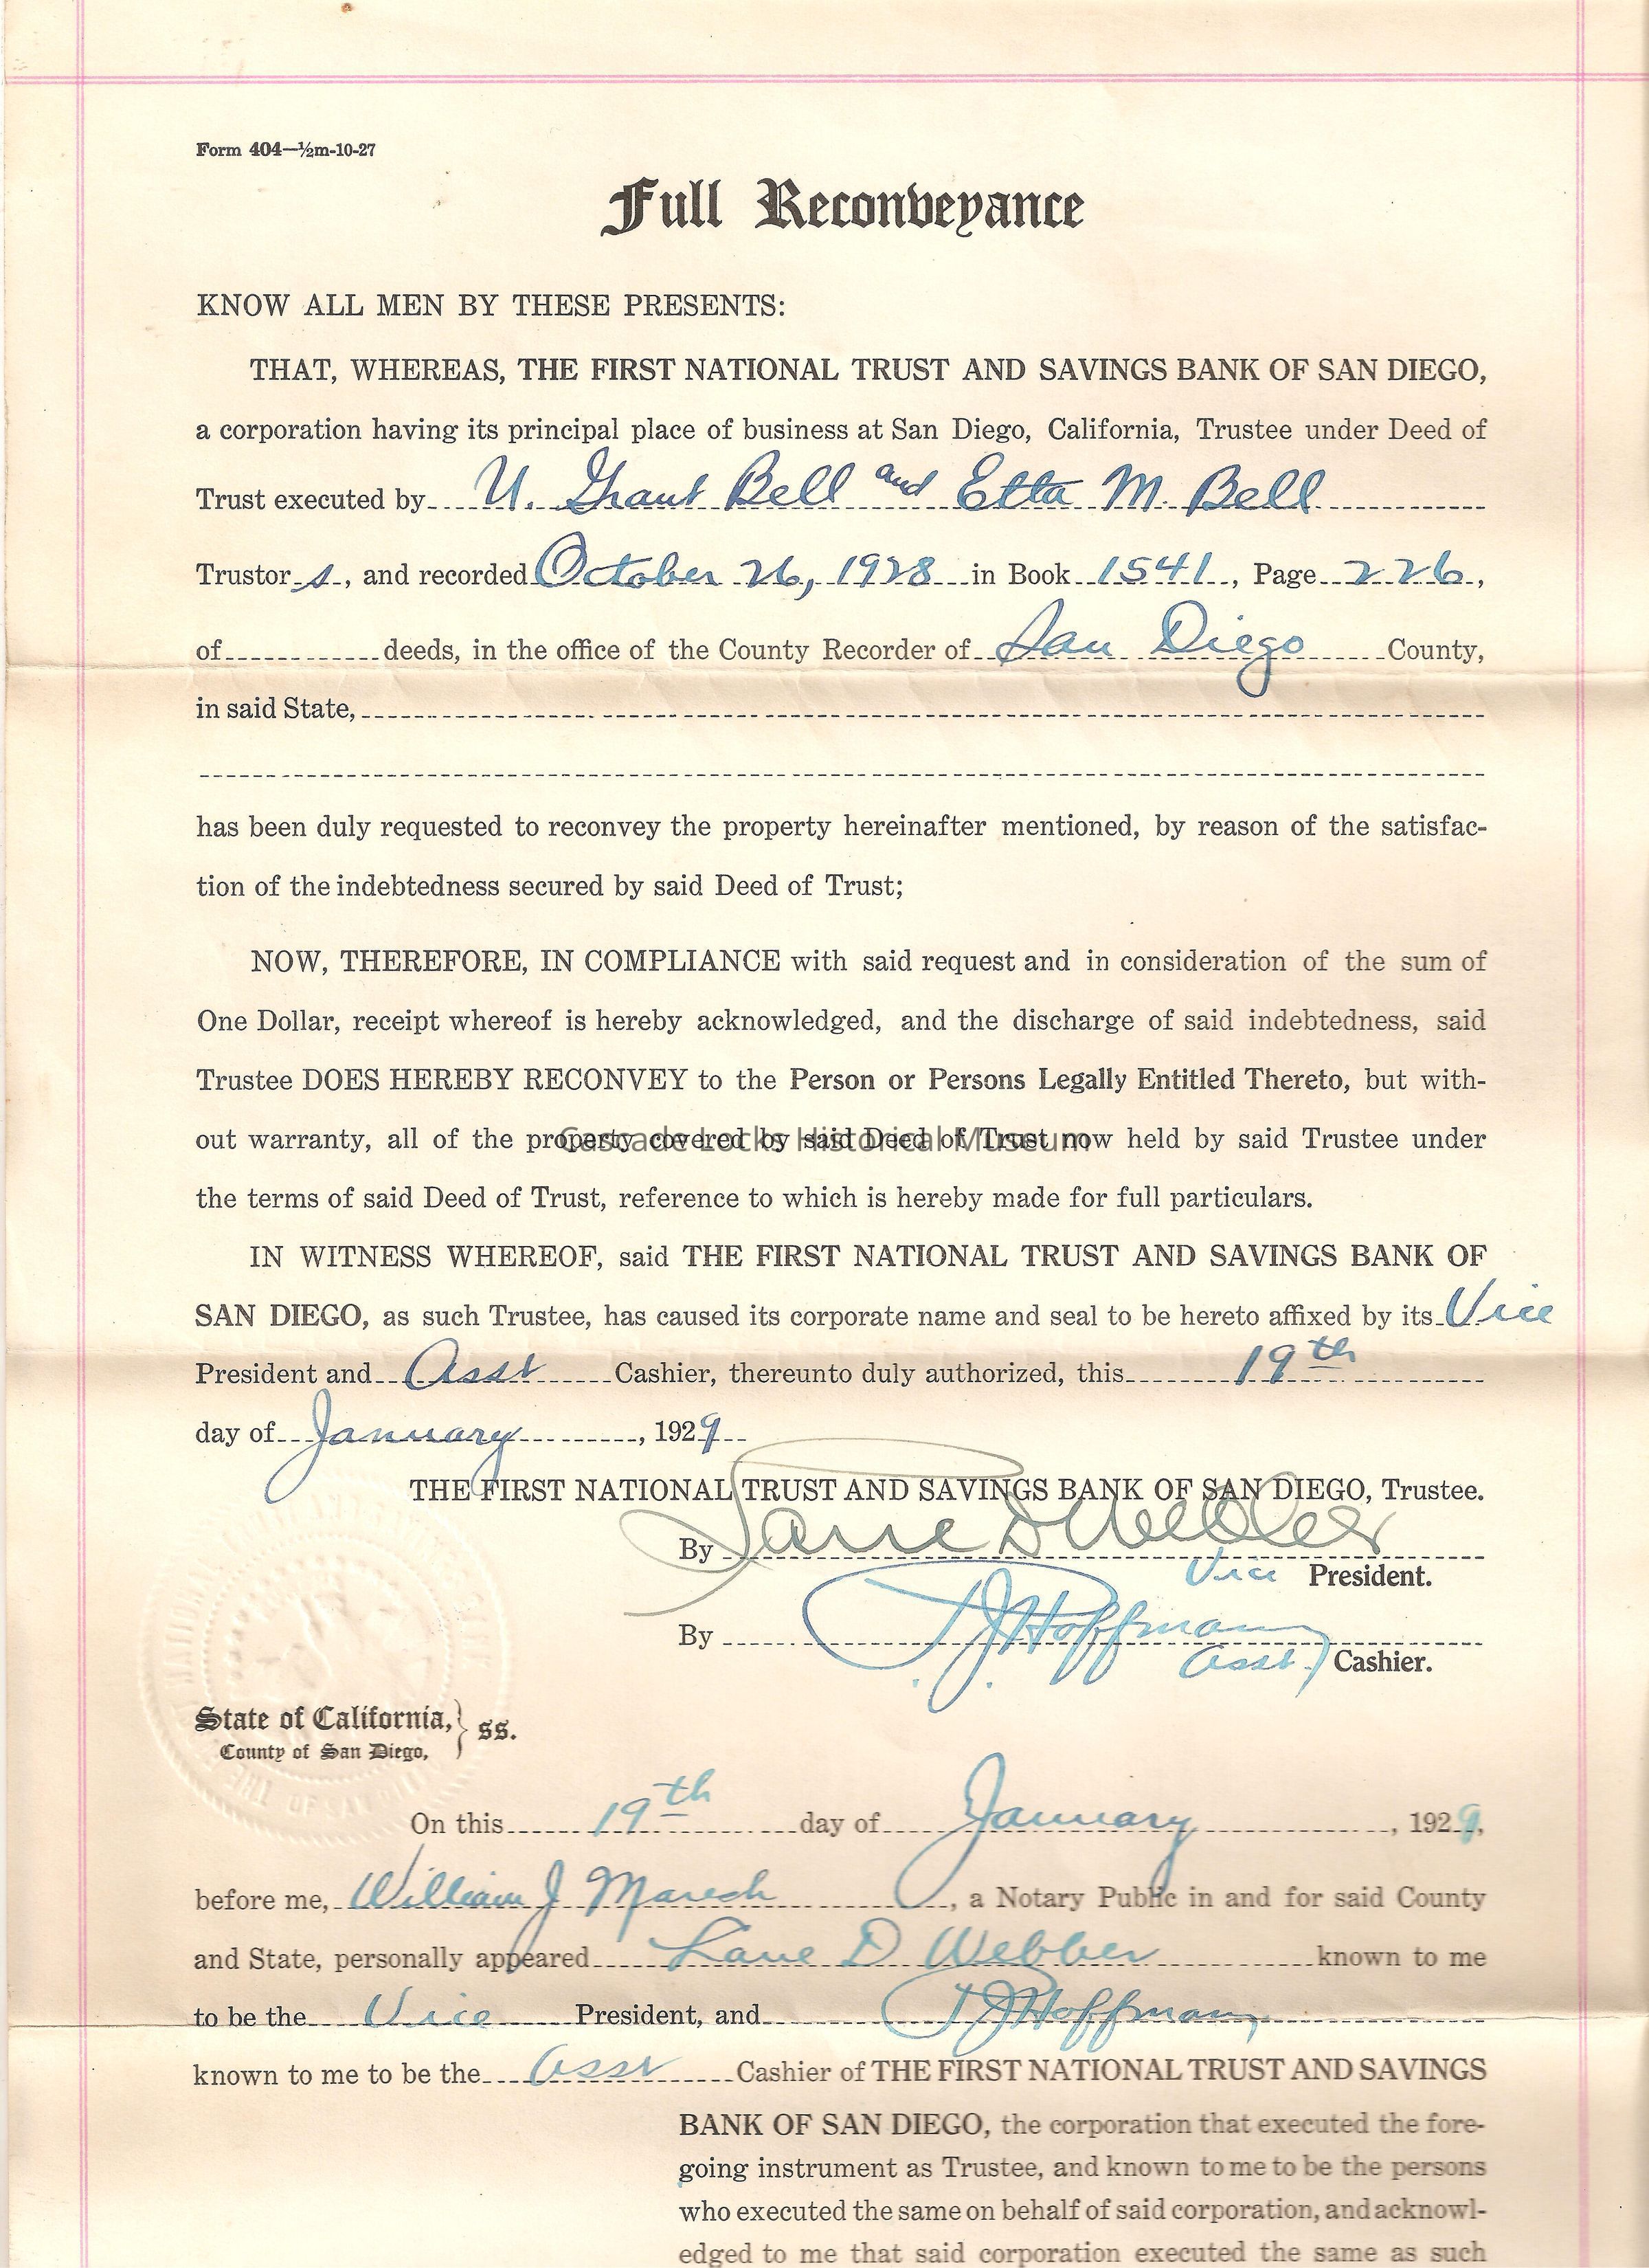 Form 404—½m-10-27
Full Reconveyance
KNOW ALL MEN BY THESE PRESENTS:
THAT, WHEREAS, THE FIRST NATIONAL TRUST AND SAVINGS BANK OF SAN DIEGO,
a corporation having its principal place of business at San Diego, California, Trustee under Deed of
Trust executed by U. Grant Bell and Etta M. Bell
Trustor s, and recorded October 26, 1928 in Book 1541, Page 226,
of deeds, in the office of the County Recorder of San Diego County,
in said State,
has been duly requested to reconvey the property hereinafter mentioned, by reason of the satisfac-
tion of the indebtedness secured by said Deed of Trust;
NOW, THEREFORE, IN COMPLIANCE with said request and in consideration of the sum of
One Dollar, receipt whereof is hereby acknowledged, and the discharge of said indebtedness, said
Trustee DOES HEREBY RECONVEY to the Person or Persons Legally Entitled Thereto, but with-
out warranty, all of the property covered by said Deed of Trust now held by said Trustee under
Cascade Locks Historical Museum
the terms of said Deed of Trust, reference to which is hereby made for full particulars.
IN WITNESS WHEREOF, said THE FIRST NATIONAL TRUST AND SAVINGS BANK OF
SAN DIEGO, as such Trustee, has caused its corporate name and seal to be hereto affixed by its Vice
President and Asst Cashier, thereunto duly authorized, this 19th
day of January, 1929
THE FIRST NATIONAL TRUST AND SAVINGS BANK OF SAN DIEGO, Trustee.
By Lane D Webber
Vice President.
By T J Hoffmann
Asst. Cashier.
State of California, } ss.
County of San Diego,
On this 19th day of January, 1929,
before me, William J Maresh, a Notary Public in and for said County
and State, personally appeared Lane D Webber known to me
to be the Vice President, and T J Hoffmann
known to me to be the Asst Cashier of THE FIRST NATIONAL TRUST AND SAVINGS
BANK OF SAN DIEGO, the corporation that executed the fore-
going instrument as Trustee, and known to me to be the persons
who executed the same on behalf of said corporation, and acknowl-
edged to me that said corporation executed the same as such